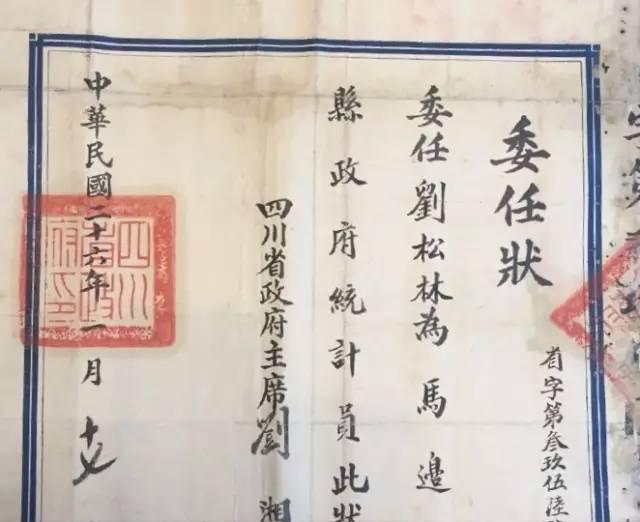 委任狀
省字第叁玖伍陸
委任劉松林為馬邊
縣政府統計員此狀
四川省政府主席劉湘
中華民國二十六年一月十
四川省政府印